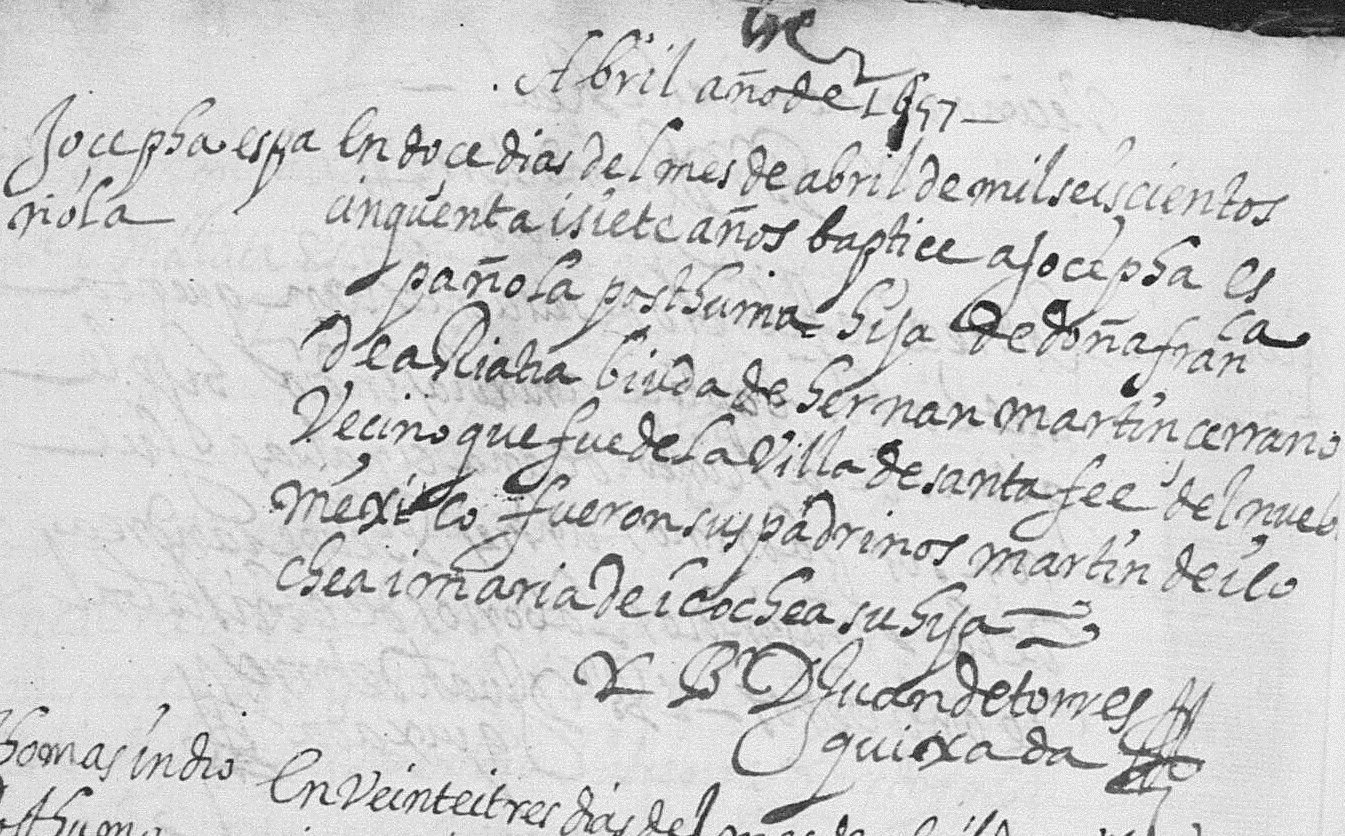 Abril año de 1657
Jocepha espa
ñola
En doce dias del mes de abril de mil seiscientos
cinquenta i siete años baptice a Jocepha es
pañola posthuma hija de doña fran^ca
de aRiata biuda de hernan martin cerrano
Vecino que fue de la Villa de santa fee del nuebo
mexico fueron sus padrinos martin de ico
chea i maria de icochea su hija
Br D Juan de torres
quixada
thomas indio
posthumo
En Veinte i tres dias del mes de abril de